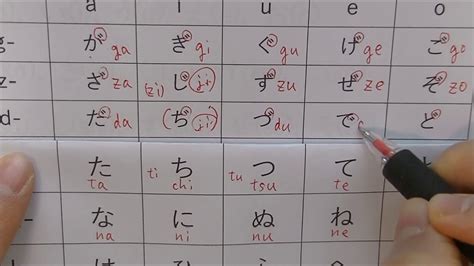 a i u e o
g- が ga ぎ gi ぐ gu げ ge ご go
z- ざ za (zi) じ (ji) ず zu ぜ ze ぞ zo
d- だ da (ぢ (ji)) づ du で ど
た ti ち tu つ て
ta chi tsu te
な に ぬ ね
na ni nu ne